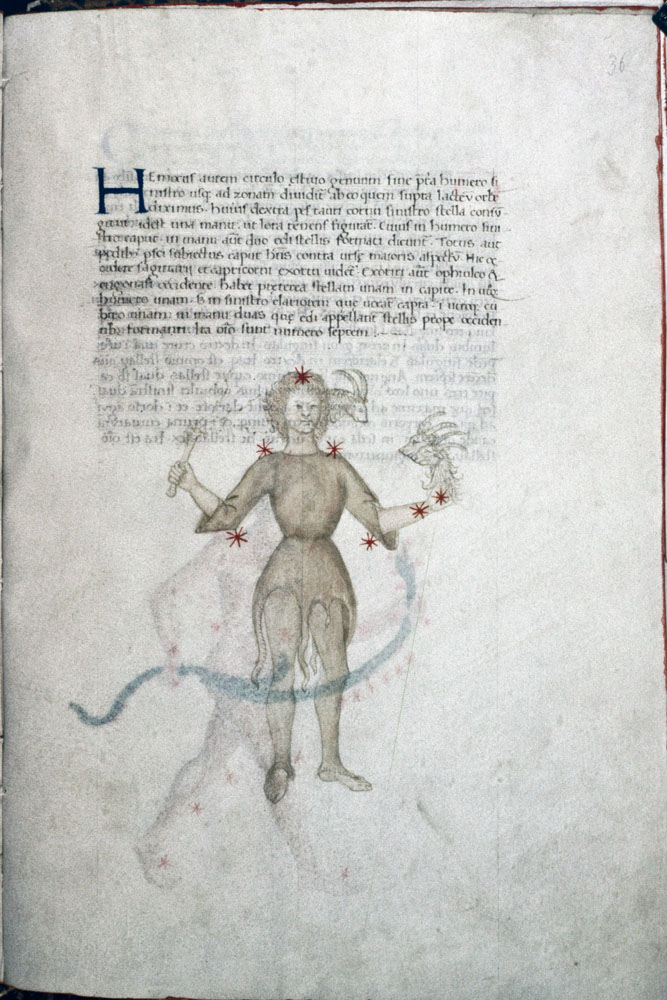 36
HEniocus autem circulo estiuo genuum fine p̄ea humero si
nistro usq; ad zonam diuidit᷑ ab eo quem supra lacteū orbē
diximus. huius dextra pes tauri cornu sinistro stella coniu
gitur idest una manu. ut lora tenens figurat᷑. Cuius in humero sini
stro capre. in manu aut̄ duo edi stellis formati dicunt᷑. Totus aut̄
pedib; psei subiectus caput h̄ns contra urse maioris aspectū. Hic oc
cidere sagittarij et capricorni exortu uidet᷑. Exoriri aūt ophiulco &
engonasi occidente. habet preterea stellam unam in capite. In utq;
humero unam. s; in sinistro clariorem que uocat᷑ capra. i utroq; cu
bito unam. in manu duas que edi appellant᷑ stellis prope occiden
tib; formantur. Ita oēs sunt numero septem